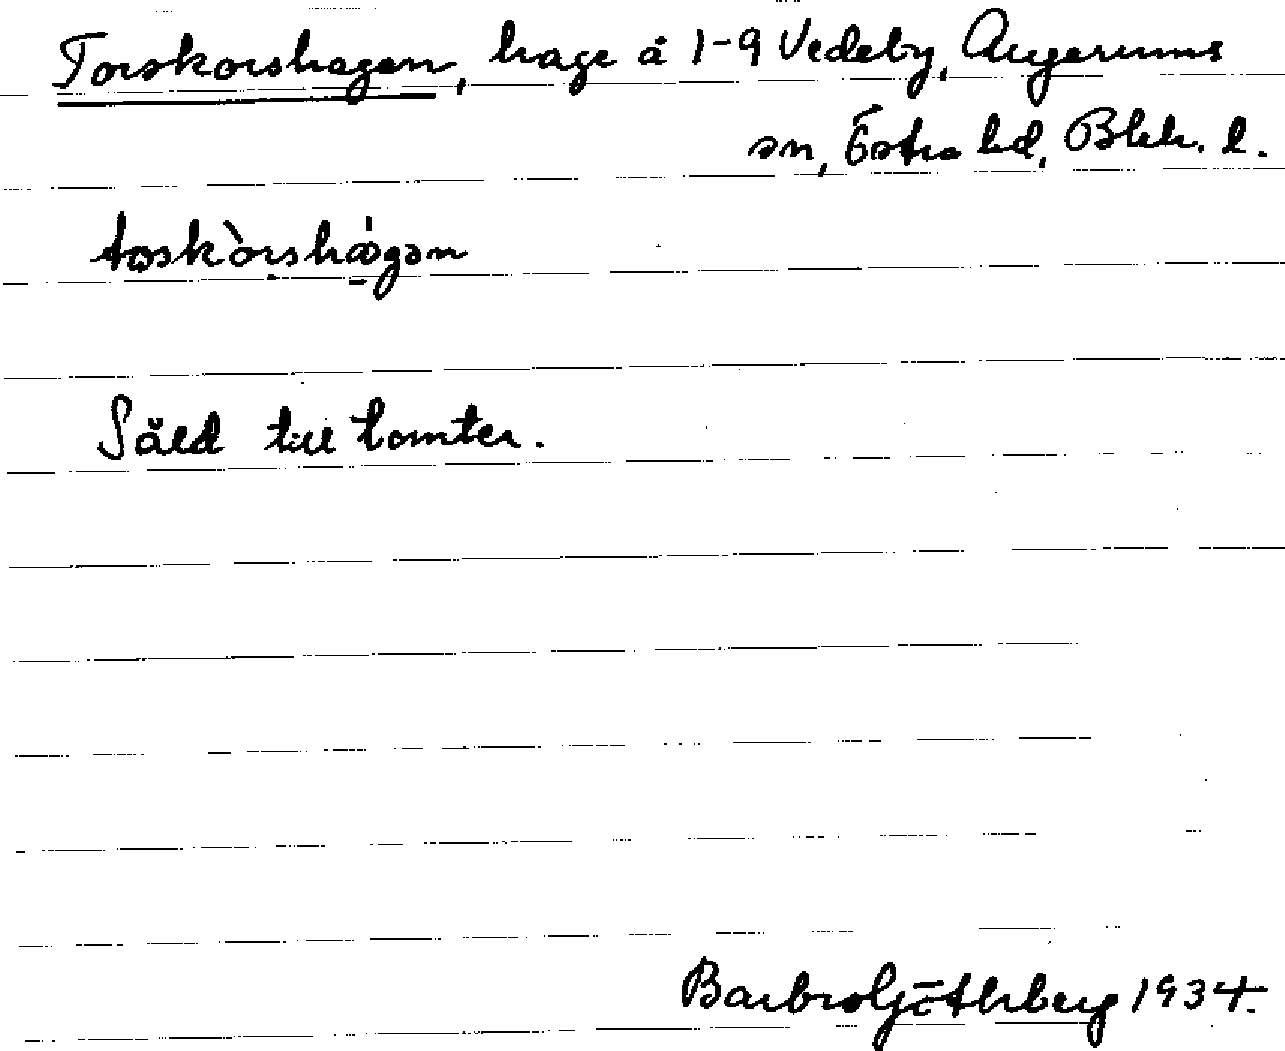 Torskorshagen, hage å 1-9 Vedeby, Augerums
sn, Östra hd, Blek. l.
toskòrshágən
Såld till tomter.
Barbro Götlrberg 1934.